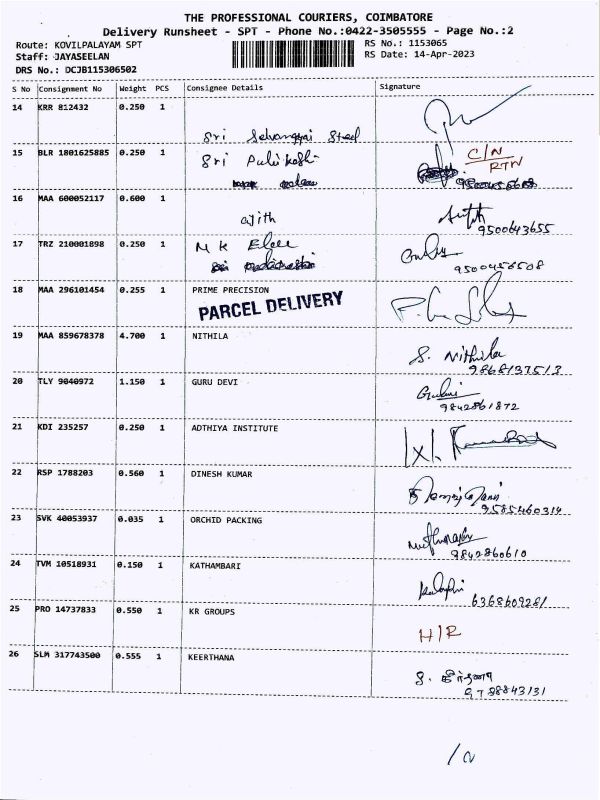 THE PROFESSIONAL COURIERS, COIMBATORE
Delivery Runsheet - SPT - Phone No.:0422-3505555 - Page No.:2
Route: KOVILPALAYAM SPT
RS No.: 1153065
Staff: JAYASEELAN
RS Date: 14-Apr-2023
DRS No.: DCJB115306502
S No Consignment No Weight PCS Consignee Details Signature
14 KRR 812432 0.250 1
Sri Steel
15 BLR 1801625885 0.250 1
Sri
C/N
RTN
16 MAA 600052117 0.600 1
ajith
9500643655
17 TRZ 210001898 0.250 1
M K
9500456508
18 MAA 296101454 0.255 1 PRIME PRECISION
PARCEL DELIVERY
19 MAA 859678378 4.700 1 NITHILA
S. Nithila
9868137513
20 TLY 9040972 1.150 1 GURU DEVI
9842861872
21 KDI 235257 0.250 1 ADTHIYA INSTITUTE
22 RSP 1788203 0.560 1 DINESH KUMAR
9585460314
23 SVK 40053937 0.035 1 ORCHID PACKING
9842860610
24 TVM 10518931 0.150 1 KATHAMBARI
6368609281
25 PRO 14737833 0.550 1 KR GROUPS
H/R
26 SLM 317743500 0.555 1 KEERTHANA
9788843131